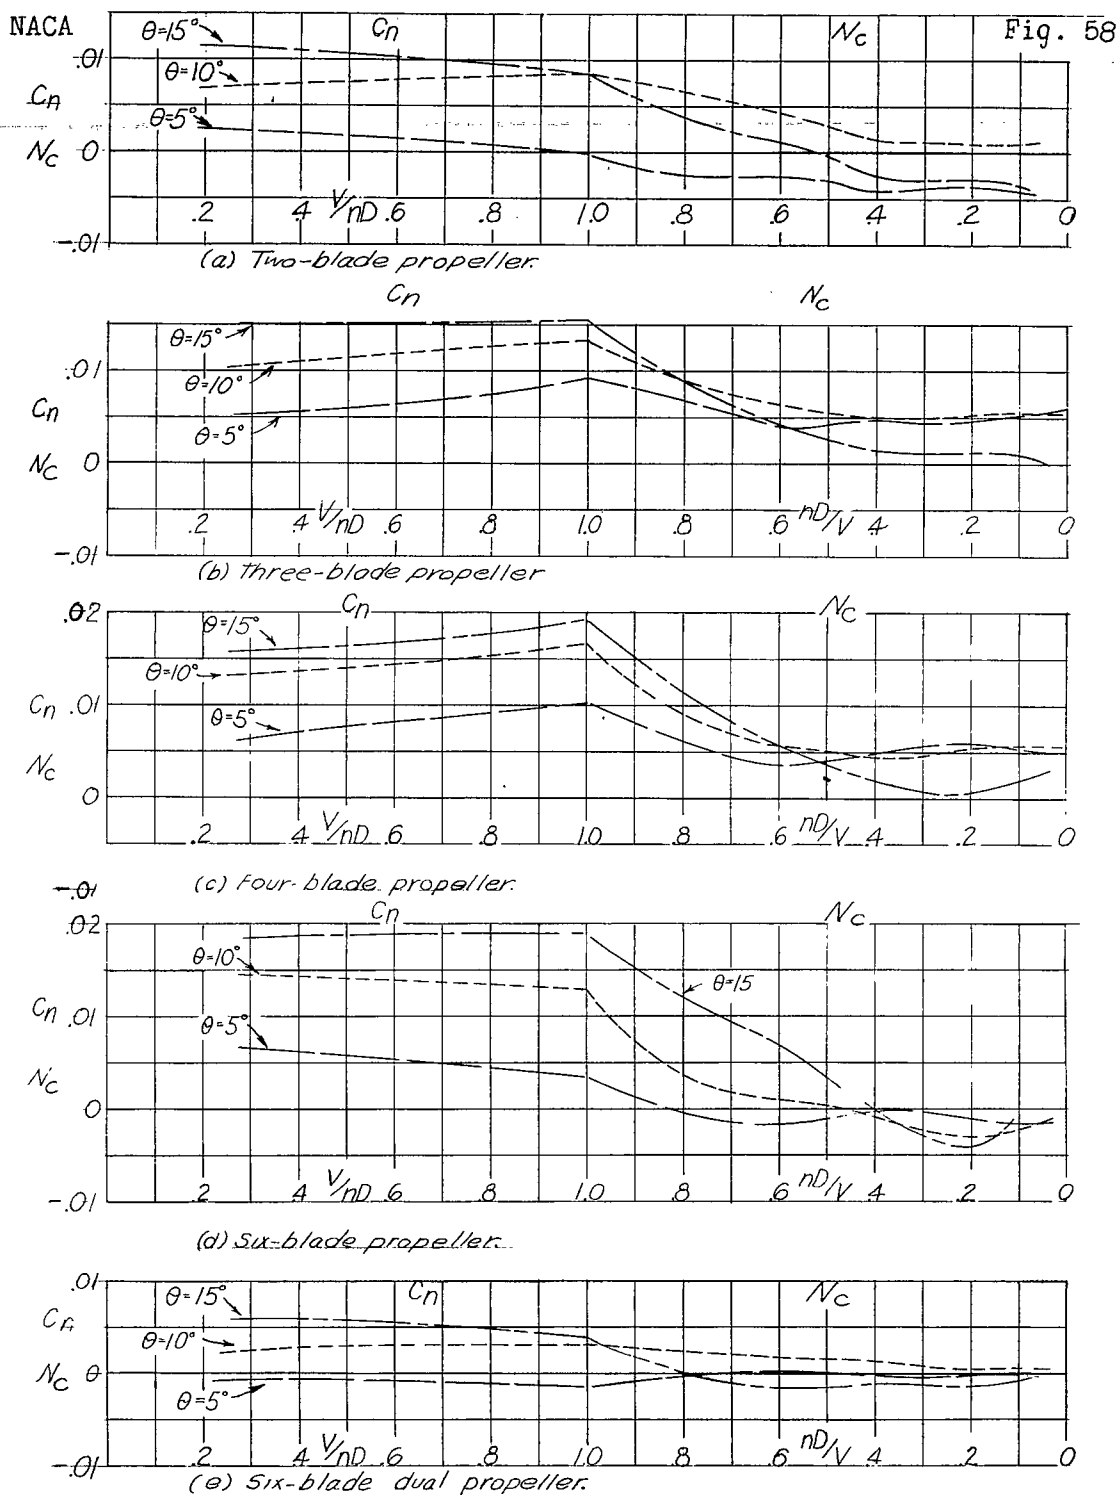 NACA Fig. 58
Cn Nc
θ=15°
.01
θ=10°
Cn
θ=5°
Nc 0
.2 .4 V/nD .6 .8 1.0 .8 .6 .4 .2 0
-.01
(a) Two-blade propeller.
Cn Nc
θ=15°
.01
θ=10°
Cn
θ=5°
Nc 0
.2 .4 V/nD .6 .8 1.0 .8 .6 nD/V .4 .2 0
-.01
(b) Three-blade propeller
.02 Cn Nc
θ=15°
θ=10°
Cn .01
θ=5°
Nc
0
.2 .4 V/nD .6 .8 1.0 .8 .6 nD/V .4 .2 0
-.01
(c) Four-blade propeller.
Cn Nc
.02
θ=10°
θ=15
Cn .01
θ=5°
Nc
0
.2 .4 V/nD .6 .8 1.0 .8 .6 nD/V .4 .2 0
-.01
(d) Six-blade propeller.
.01 Cn Nc
θ=15°
Cn
θ=10°
Nc 0
θ=5°
.2 .4 V/nD .6 .8 1.0 .8 .6 nD/V .4 .2 0
-.01
(e) Six-blade dual propeller.